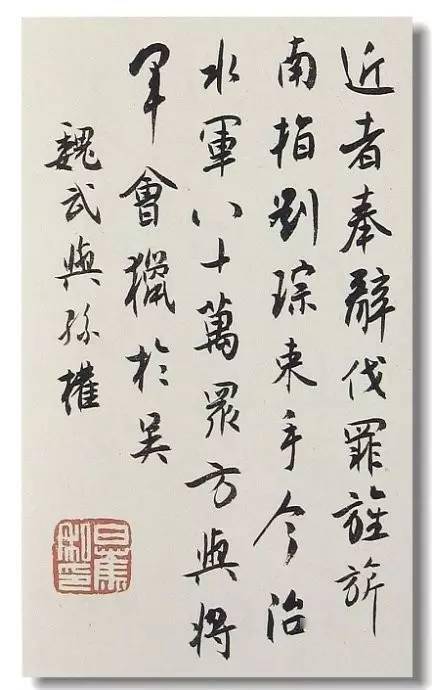 近者奉辭伐罪旌旂
南指劉琮束手今治
水軍八十萬眾方與將
軍會獵於吳
魏武與孫權